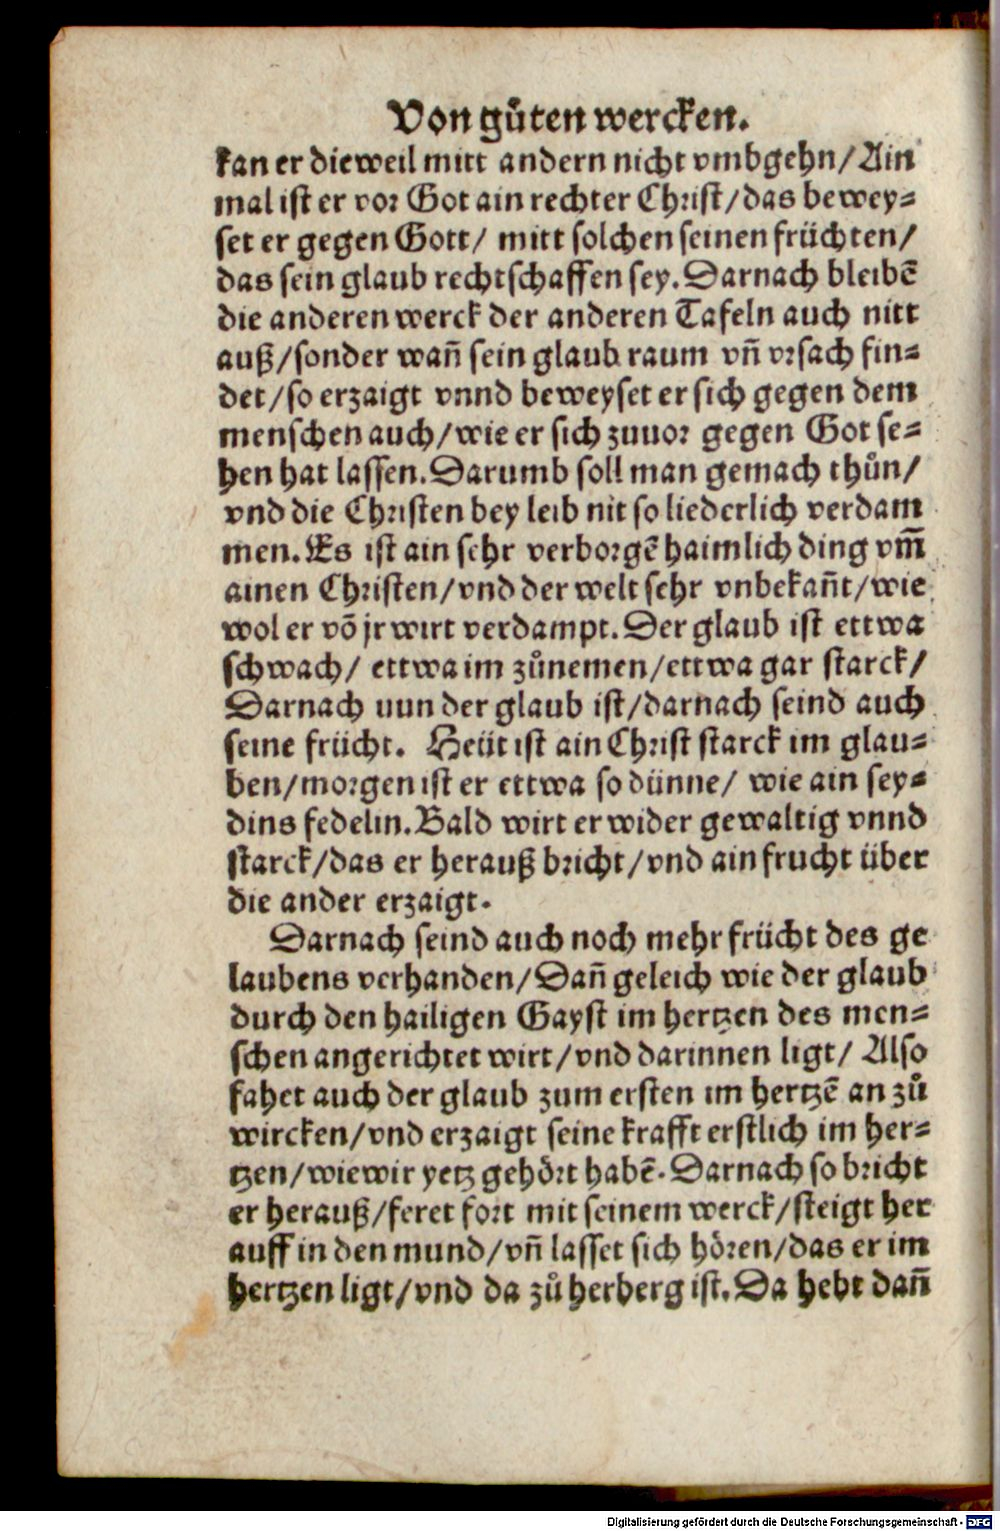 Von gůten wercken.
kan er dieweil mitt andern nicht vmbgehn/ Ain
mal ist er vor Got ain rechter Christ/ das bewey⸗
set er gegen Gott/ mitt solchen seinen früchten/
das sein glaub rechtschaffen sey. Darnach bleibẽ
die anderen werck der anderen Tafeln auch nitt
auß/ sonder wañ sein glaub raum vñ vrsach fin⸗
det/ so erzaigt vnnd beweyset er sich gegen dem
menschen auch/ wie er sich zuuor gegen Got se⸗
hen hat lassen. Darumb soll man gemach thůn/
vnd die Christen bey leib nit so liederlich verdam
men. Es ist ain sehr verborgẽ haimlich ding vm̃
ainen Christen/ vnd der welt sehr vnbekañt/ wie
wol er võ jr wirt verdampt. Der glaub ist ettwa
schwach/ ettwa im zůnemen/ ettwa gar starck/
Darnach uun der glaub ist/ darnach seind auch
seine frücht. Heüt ist ain Christ starck im glau⸗
ben/ morgen ist er ettwa so dünne/ wie ain sey⸗
dins fedelin. Bald wirt er wider gewaltig vnnd
starck/ das er herauß bricht/ vnd ain frucht über
die ander erzaigt.
Darnach seind auch noch mehr frücht des ge
laubens verhanden/ Dañ geleich wie der glaub
durch den hailigen Gayst im hertzen des men⸗
schen angerichtet wirt/ vnd darinnen ligt/ Also
fahet auch der glaub zum ersten im hertzẽ an zů
wircken/ vnd erzaigt seine krafft erstlich im her⸗
tzen/ wie wir yetz gehört habẽ. Darnach so bricht
er herauß/ feret fort mit seinem werck/ steigt her
auff in den mund/ vñ lasset sich hören/ das er im
hertzen ligt/ vnd da zů herberg ist. Da hebt dañ
Digitalisierung gefördert durch die Deutsche Forschungsgemeinschaft - DFG